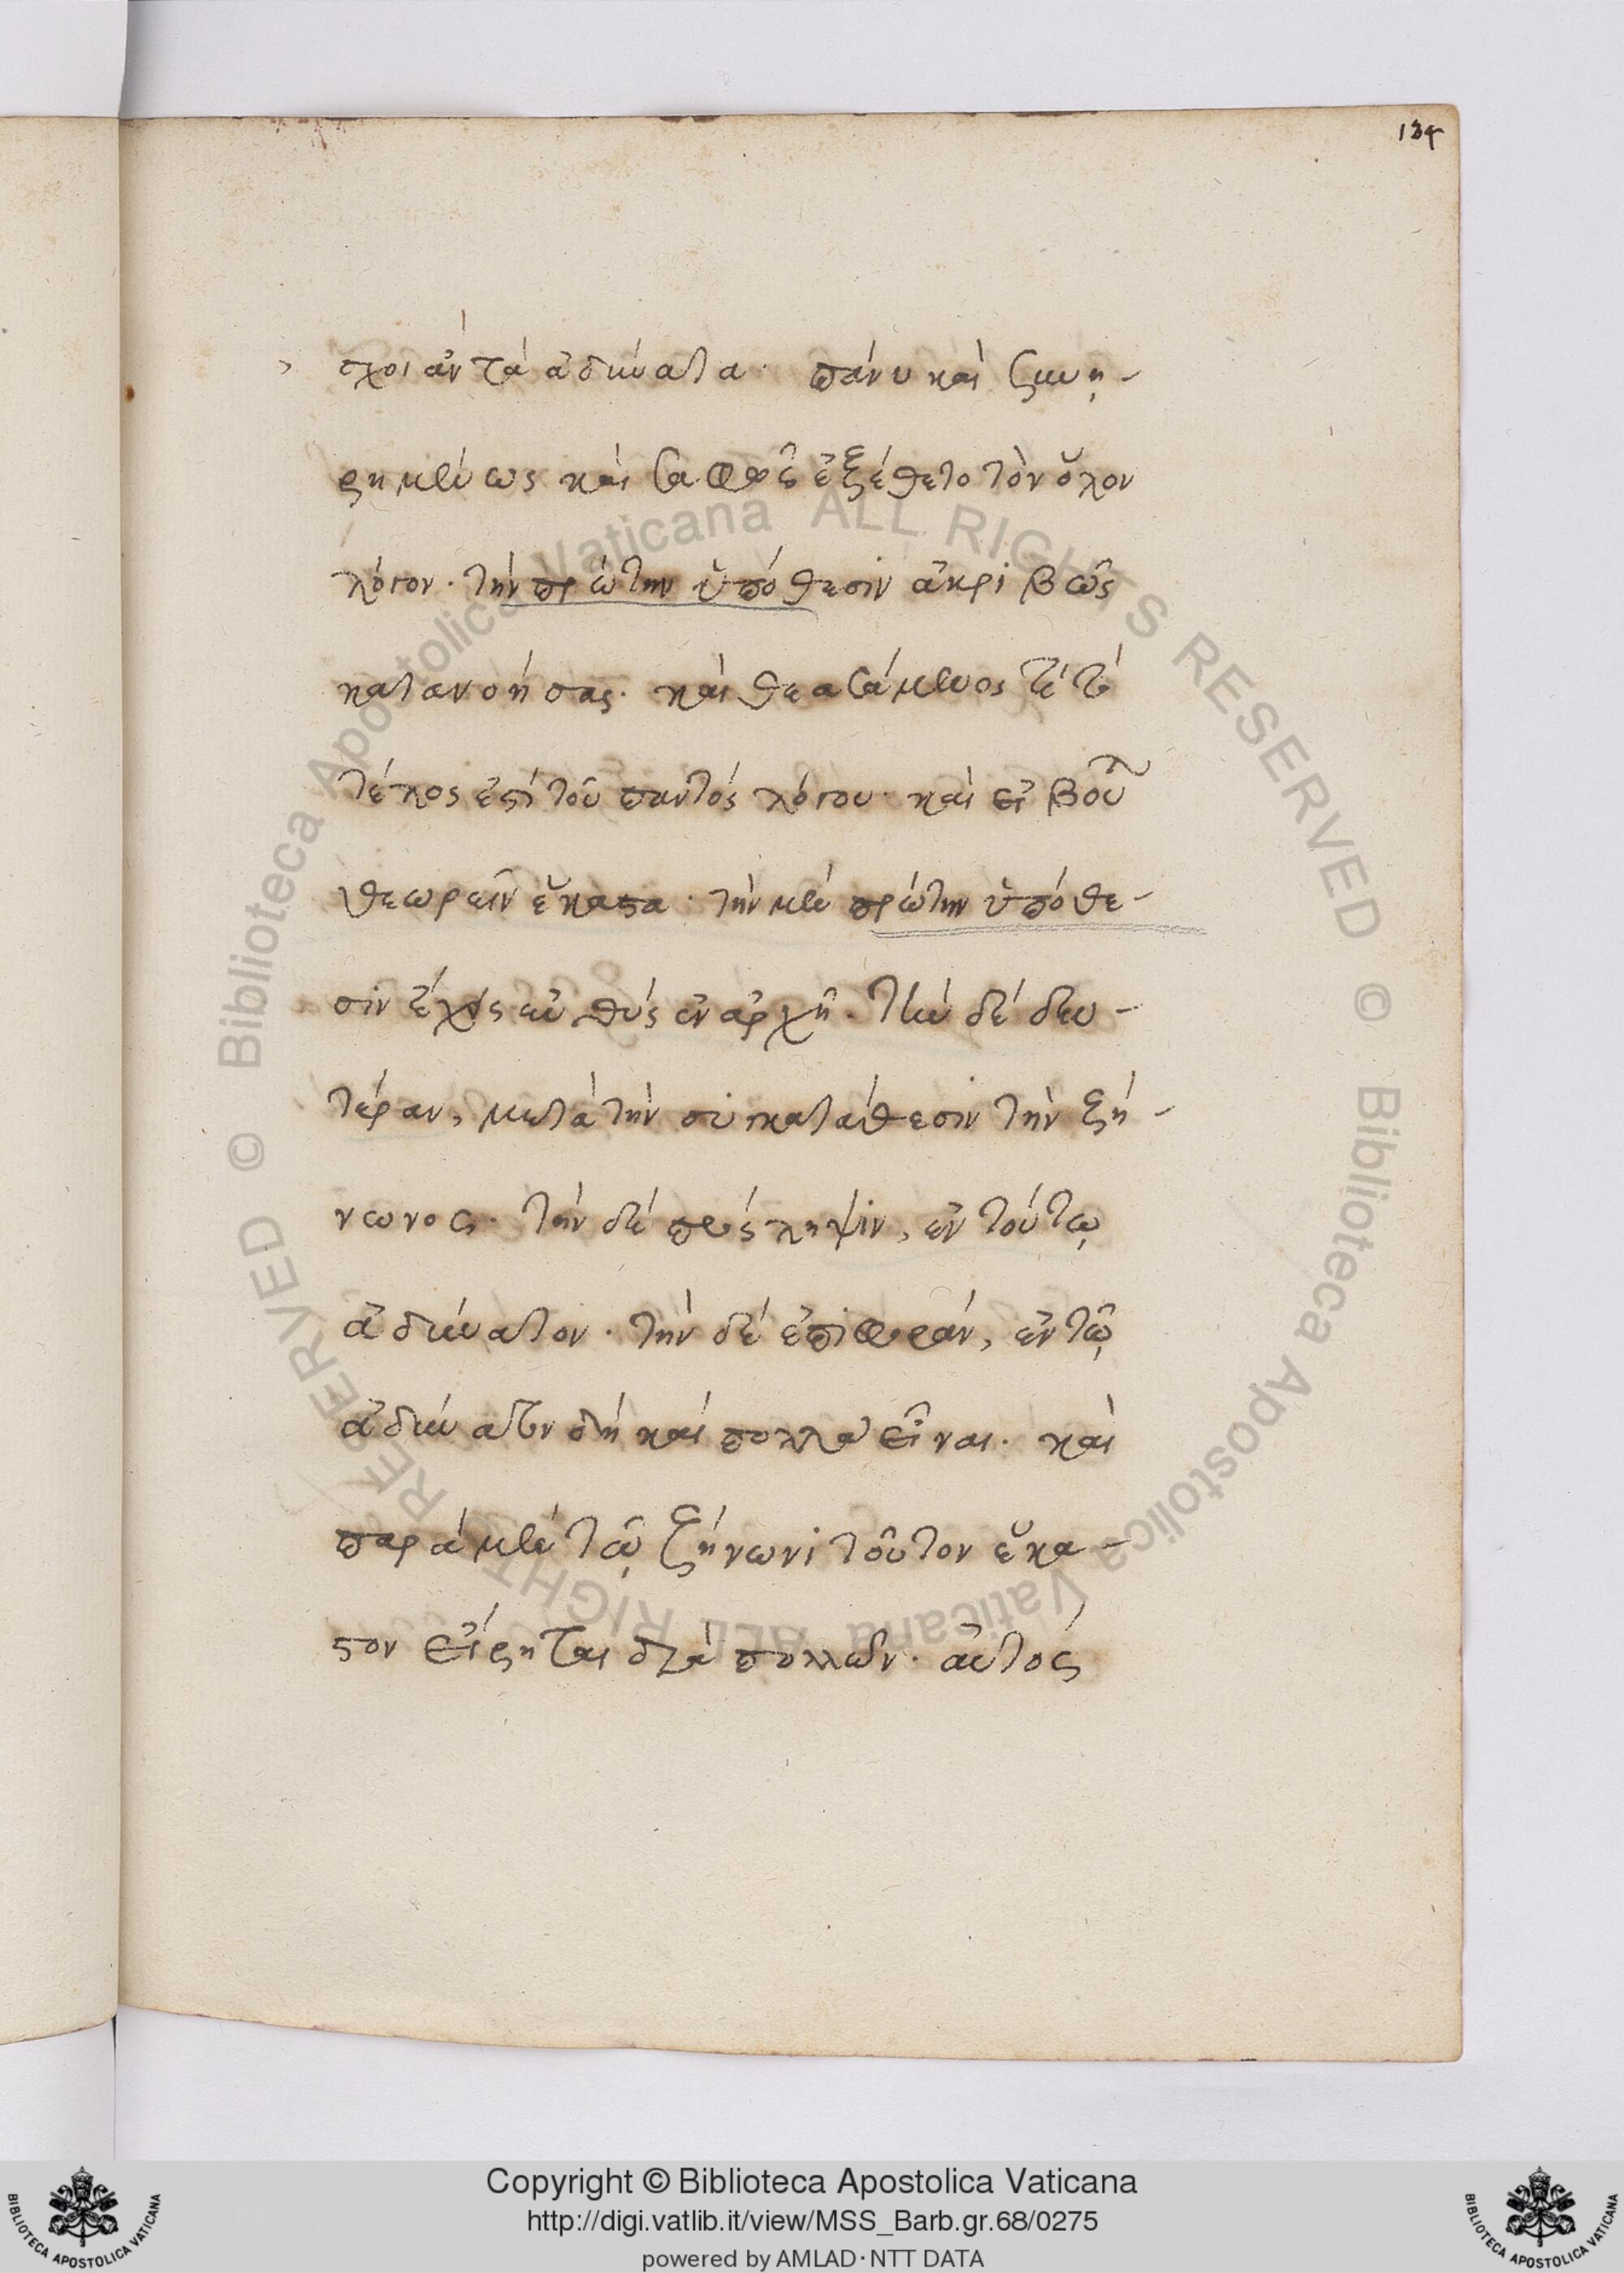 134
σχοι ἂν τὰ ἀδύνατα· πάνυ καὶ συνῃ-
ρημένως καὶ σαφῶς ἐξέθετο τὸν ὅλον
λόγον· τὴν πρώτην ὑπόθεσιν ἀκριβῶς
κατανοήσας· καὶ θεασάμενος τό τε
τέλος ἐπὶ τοῦ παντὸς λόγου· καὶ εἰ βού
θεωρεῖν ἕκαστα· τὴν μὲν πρώτην ὑπόθε-
σιν ἔχεις εὐθὺς ἐν ἀρχῇ· τὴν δὲ δευ-
τέραν, μετὰ τὴν συγκατάθεσιν τὴν ζή-
νωνος· τὴν δὲ πρόσληψιν, ἐν τούτῳ
ἀδύνατον· τὴν δὲ ἐπιφοράν, ἐν τῷ
ἀδύνατον δὴ καὶ πολλὰ εἶναι· καὶ
παρὰ μὲν τῷ ζήνωνι τοῦτον ἕκα-
στον εἴρηται διὰ πολλῶν· αὐτὸς
© Biblioteca Apostolica Vaticana ALL RIGHTS RESERVED
© Biblioteca Apostolica Vaticana ALL RIGHTS RESERVED
Copyright © Biblioteca Apostolica Vaticana
http://digi.vatlib.it/view/MSS_Barb.gr.68/0275
powered by AMLAD·NTT DATA
BIBLIOTECA APOSTOLICA VATICANA
BIBLIOTECA APOSTOLICA VATICANA